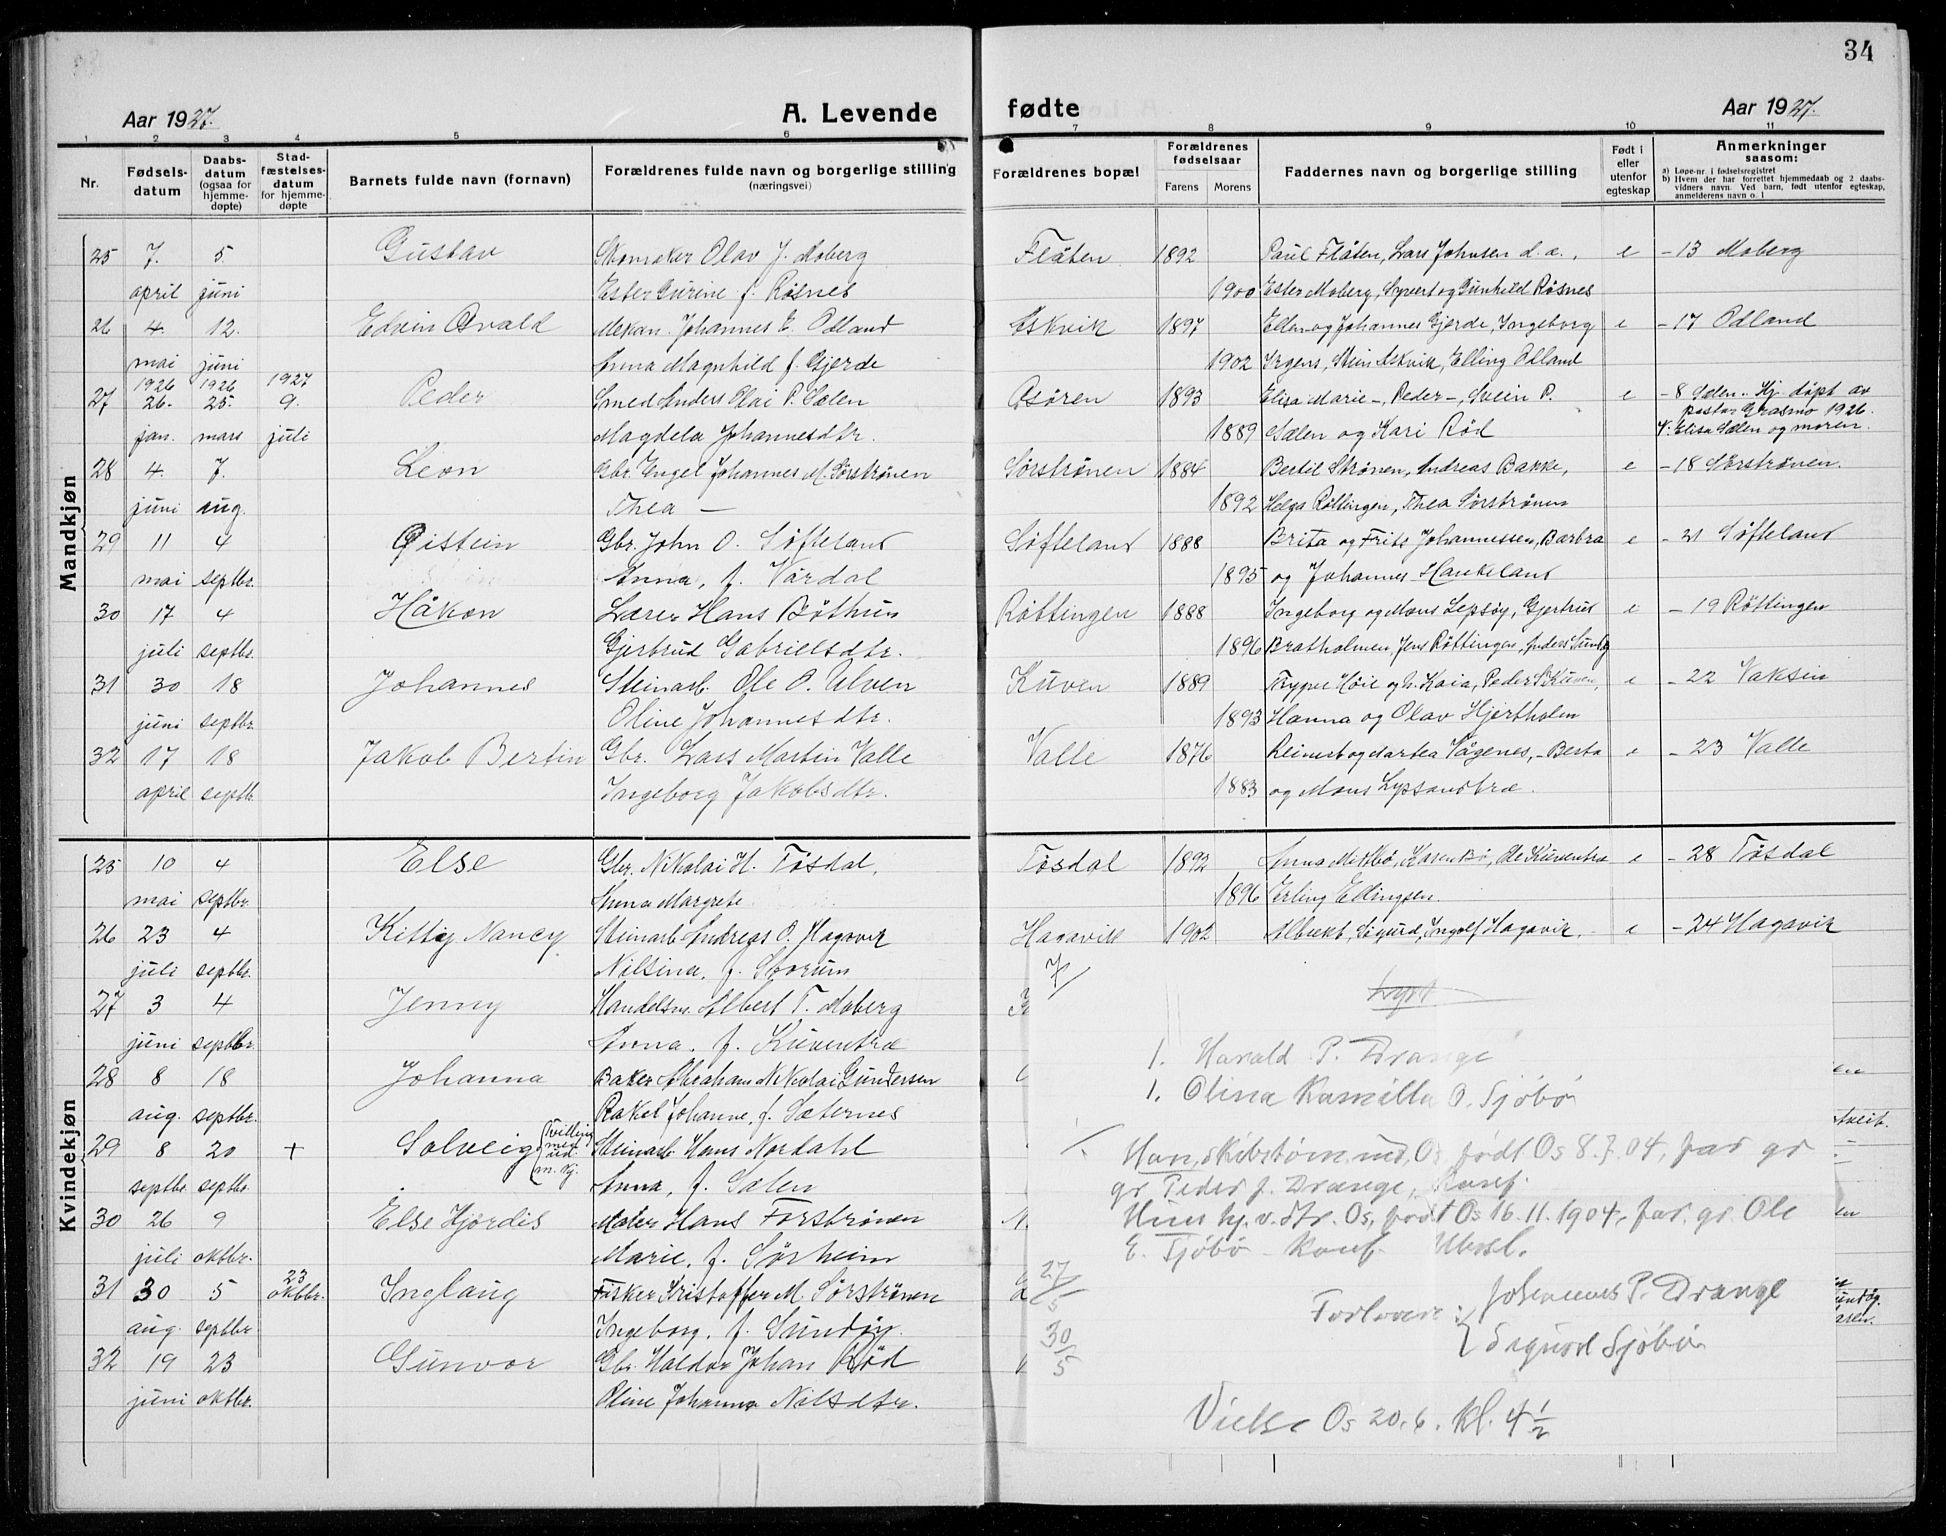 34
Aar 1927. A. Levende fødte Aar 1927.
1 2 3 4 5 6 7 8 9 10 11
Nr. Fødsels-datum Daabs-datum (ogsaa for hjemme-døpte) Stad-fæstelses-datum for hjemme-døpte Barnets fulde navn (fornavn) Forældrenes fulde navn og borgerlige stilling (næringsvei) Forældrenes bopæl Forældrenes fødselsaar Farens Morens Faddernes navn og borgerlige stilling Født i eller utenfor egteskap Anmerkninger saasom:
a) Løpe-nr. i fødselsregistret
b) Hvem der har forrettet hjemmedaab og 2 daabs-
vidners navn. Ved barn, født utenfor egteskap,
anmelderens navn o. l
Mandkjøn
25 7. 5. Gustav Skomaker Olav J. Moberg Flåten 1892 Paul Flåten, Lars Johnsen d. a., e - 13 Moberg
april juni Ester Gurine f. Røsnes 1900 Ester Moberg, Syvert og Gunhild Røsnes
26 4. 12. Edvin Osvald Mekan. Johannes E. Odland Askvik 1897 Ellen og Johannes Gjerde, Ingeborg e - 17 Odland
mai juni Anna Magnhild f. Gjerde 1902 Irgens, Stein Askvik, Elling Odland
1926 1926 1927
27 26. 25. 9. Peder Smed Anders Olai P. Sælen Osøren 1893 Elisa Marie -, Peder -, Svein P. e - 8 Sælen. Hj. døpt av
pastor Grasmo 1926.
jan. mars juli Magdela Johannesdtr. 1889 Sælen og Kari Rød V. Elisa Sælen og moren.
28 4. 7. Leon Gbr. Ingel Johannes M. Sørstrønen Sørstrønen 1884 Bertil Strønen, Andreas Bakke, e - 18 Sørstrønen.
juni aug. Thea - 1892 Helga Røttingen, Thea Sørstrønen
29 11 4 Øistein Gbr. John O. Søfteland Søfteland 1888 Brita og Frits Johannessen, Barbra e - 21 Søfteland
mai septbr. Anna, f. Vårdal 1895 og Johannes Haukeland
30 17 4 Håkon Lærer Hans Bøthun Røttingen 1888 Ingeborg og Mons Lepsøy, Gjertrud e - 19 Røttingen
juli septbr. Gjertrud Gabrielsdtr. 1896 Bratholmen, Jens Røttingen, Anders Sundøy
31 30 18 Johannes Steinarb. Ole O. Ulven Kuven 1889 Trygve Høie og h. Kaia, Peder Kuven, e - 22 Vaksin
juni septbr. Oline Johannesdtr. 1893 Hanna og Olav Hjertholm
32 17 18 Jakob Bertin Gbr. Lars Martin Valle Valle 1876 Reinert og Martea Vågenes, - Berta e - 23 Valle
april septbr. Ingeborg Jakobsdtr. 1883 og Mons Lyssandtræ.
Kvindekjøn
25 10 4 Else Gbr. Nikolai H. Tøsdal, Tøsdal 1892 Anna Midtbø, Karen Bø, Ole Kuventræ e - 28 Tøsdal
mai septbr. Anna Margrete 1896 Erling Edlingsen
26 23 4 Kitty Nancy Steinarb Andreas O. Hagavik Hagavik 1902 Albrekt, Sigurd, Ingolf Hagavik, e - 24 Hagavik
juli septbr. Nilsina, f. Storum
27 3 4 Jenny Handelsm. Albert T. Moberg
juni septbr. Anna, f. Kuventræ
28 8 18 Johanna Baker Abraham Nikolai Gundersen
aug. septbr. Rakel Johanne, f. Sæternes
29 8 20 + Solveig (Tvilling med ... m. kj. Steinarb Hans Nordahl
septbr. septbr. Anna, f. Sælen
30 26 9 Else Hjørdis Maler Hans Forstrønen
juli oktbr. Marie, f. Sørheim
31 30 5 23 oktbr. Inglaug Fisker Kristoffer M. Sørstrønen
aug. septbr. Ingeborg, f. Sundøy
32 19 23 Gunvor Gbr. Haldor Johan Rød
juni oktbr. Oline Johanna Nilsdtr.
7/
Lyst
1. Harald P. Drange
1. Olina Kamilla O. Sjøbø
Han, skibstømm, Os, født Os 8.7.04, far gr
gr Peder J. Drange, Konf.
Hun hj. v. dtr. Os, født Os 16.11.1904, far. gr. Ole
E. Sjøbø - Konf. Ubesl.
27/5
30/5
Forlovere: Johannes P. Drange
Sigurd Sjøbø
Vielse Os 20.6. kl. 4 1/2